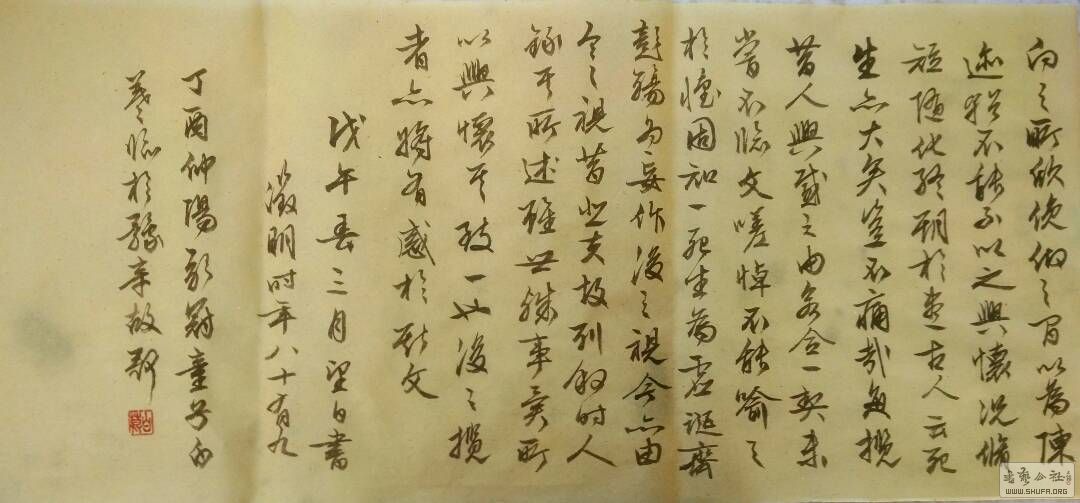 向之所欣俛仰之間以為陳
迹猶不能不以之興懷況脩
短隨化終期於盡古人云死
生亦大矣豈不痛哉每攬
昔人興感之由若合一契未
嘗不臨文嗟悼不能喻之
於懷固知一死生為虛誕齊
彭殤為妄作後之視今亦由
今之視昔悲夫故列叙時人
錄其所述雖世殊事異所
以興懷其致一也後之攬
者亦將有感於斯文
戊午春三月望日書
徵明時年八十有九
丁酉仲陽童子
臨於豫章故郡
书艺公社
WWW.SHUFA.ORG